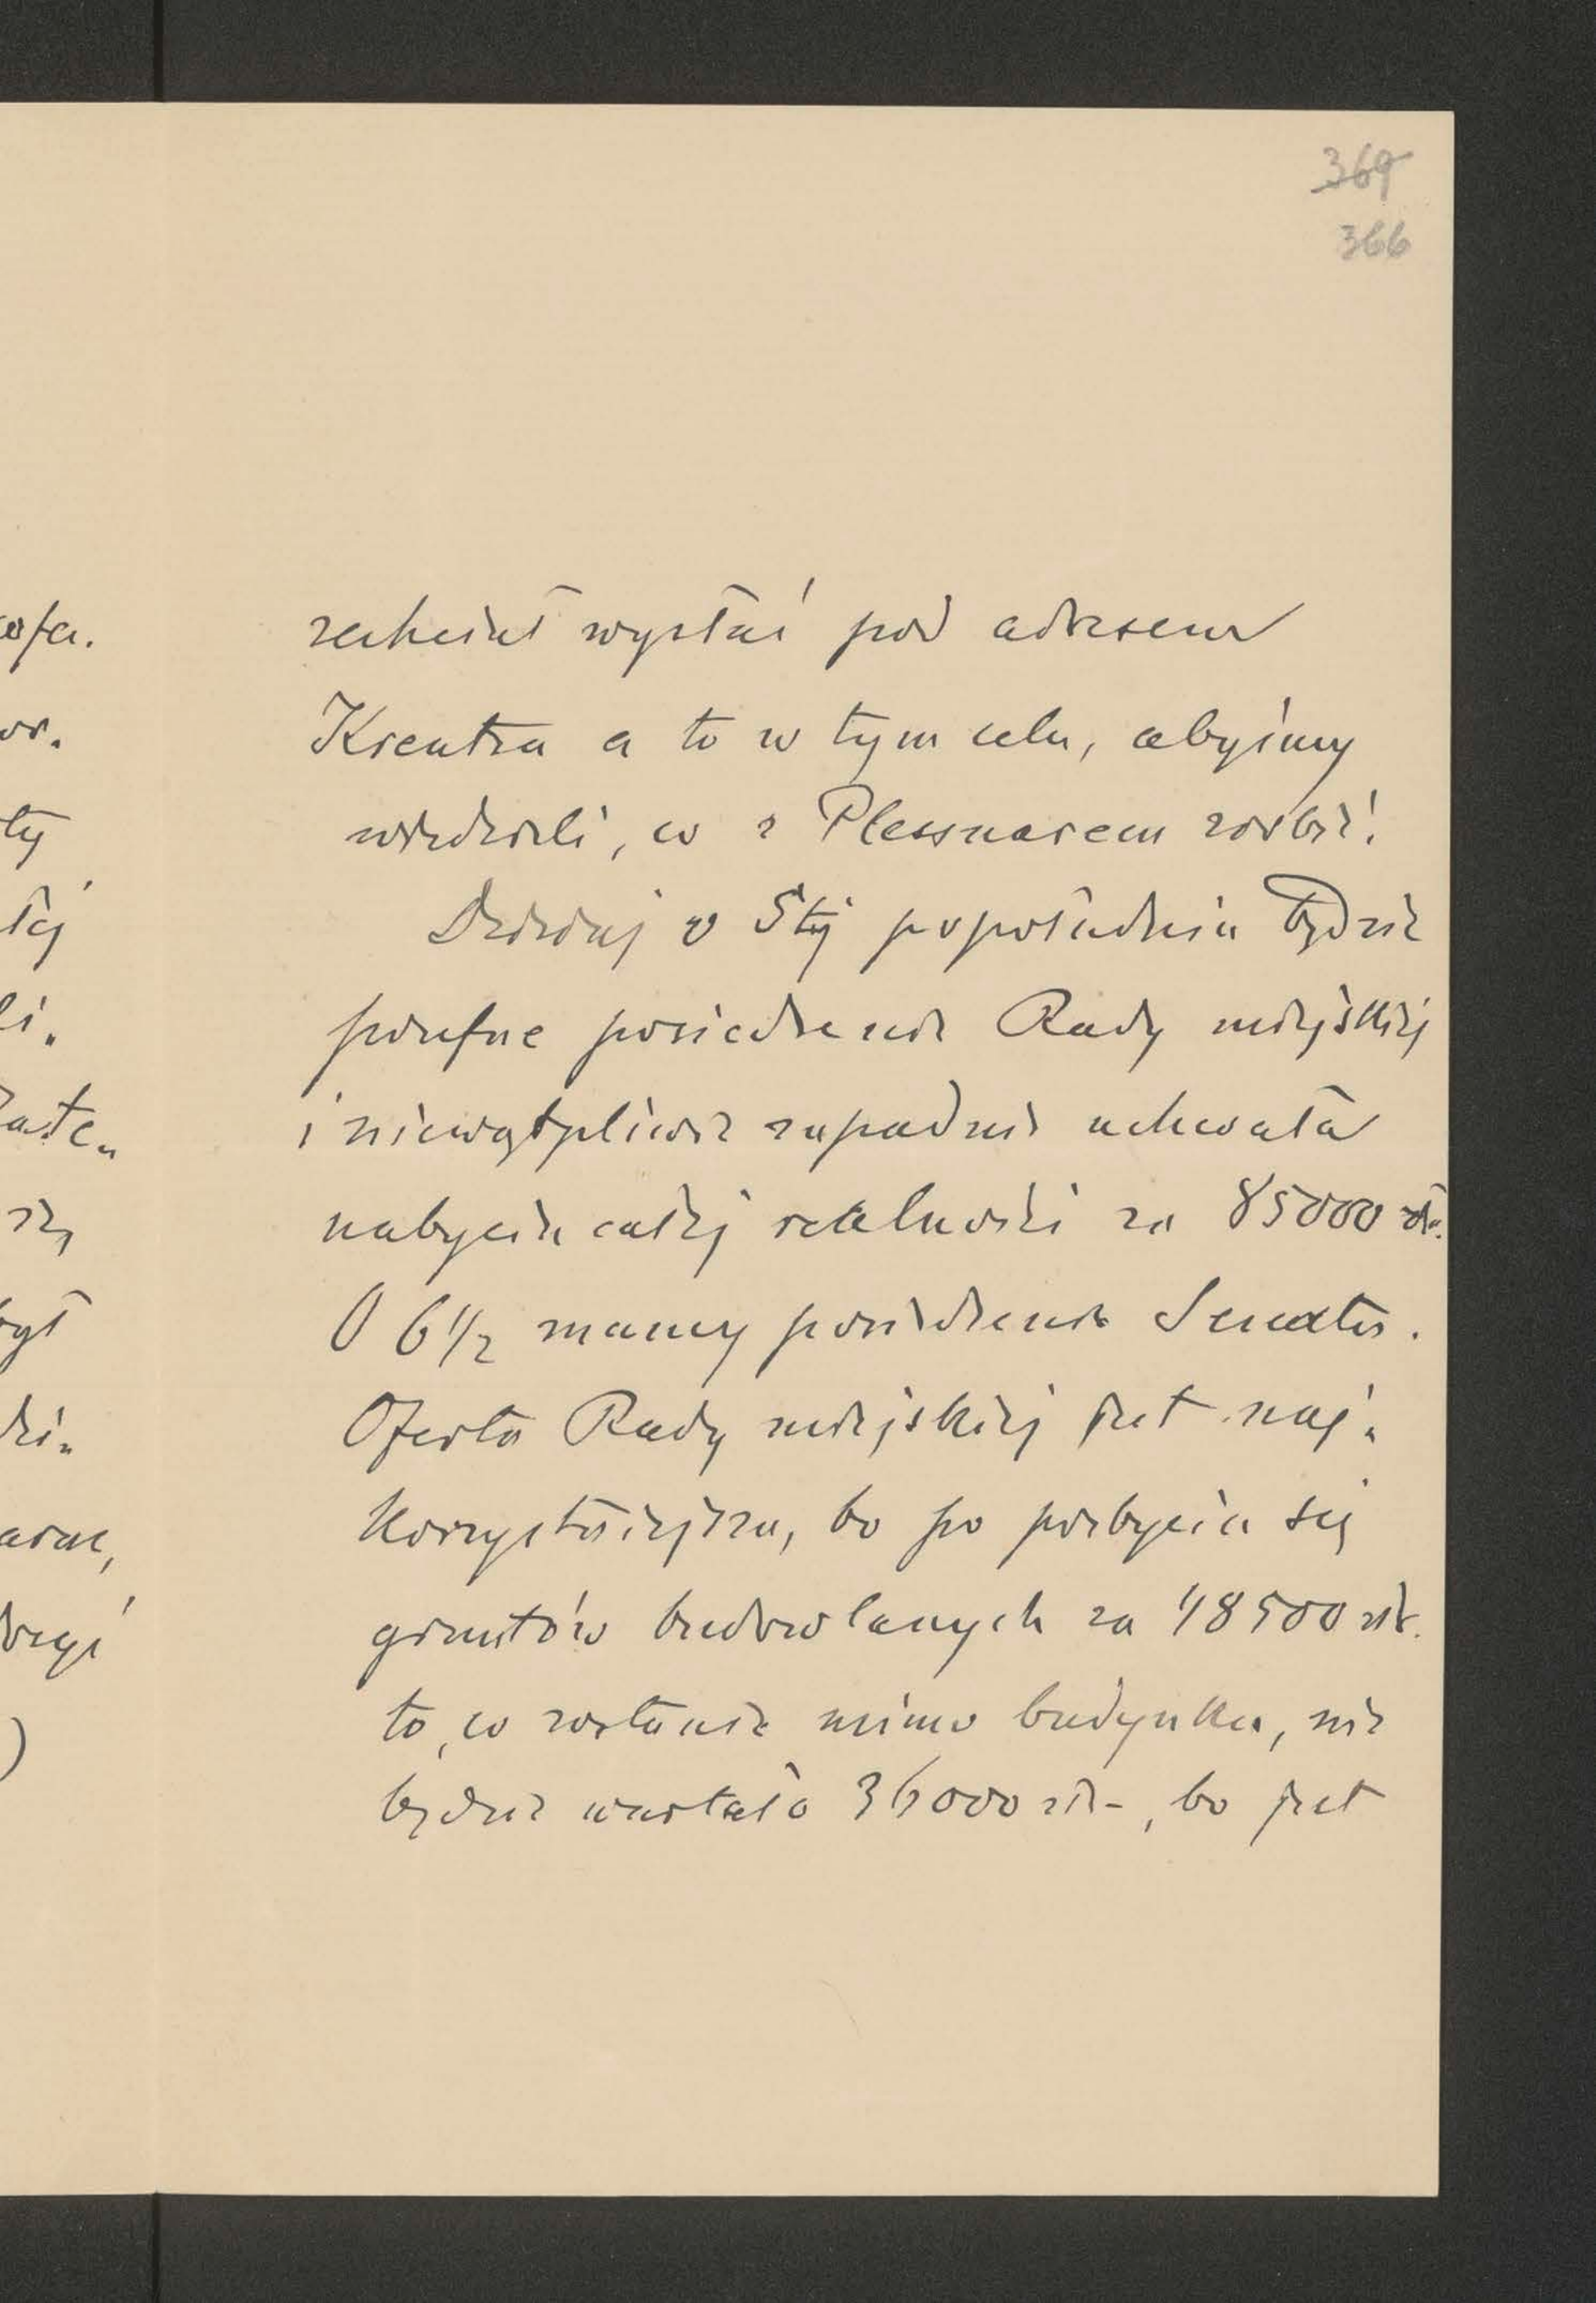 369
366
zechciał wysłać pod adresem
Kreutza a to w tym celu, abyśmy
wiedzieli, co z Plessnarem zrobić.
Dzisiaj o 5tej popołudniu będzie
poufne posiedzenie Rady miejskiej
i niewątpliwie zapadnie uchwała
nabycia całej realności za 85000 złr.
O 6 1/2 mamy posiedzenie Senatu.
Oferta Rady miejskiej jest naj„
korzystniejsza, bo po pozbyciu się
gruntów budowlanych za 48500 złr.
to, co zostanie mimo budynku, nie
będzie wartało 36000 złr., bo jest